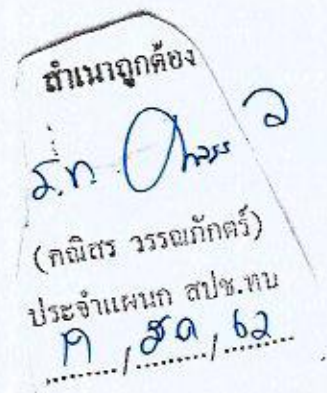 สำเนาถูกต้อง
ร.ท.
(คณิสร วรรณภักตร์)
ประจำแผนก สปช.ทบ
/ / 62